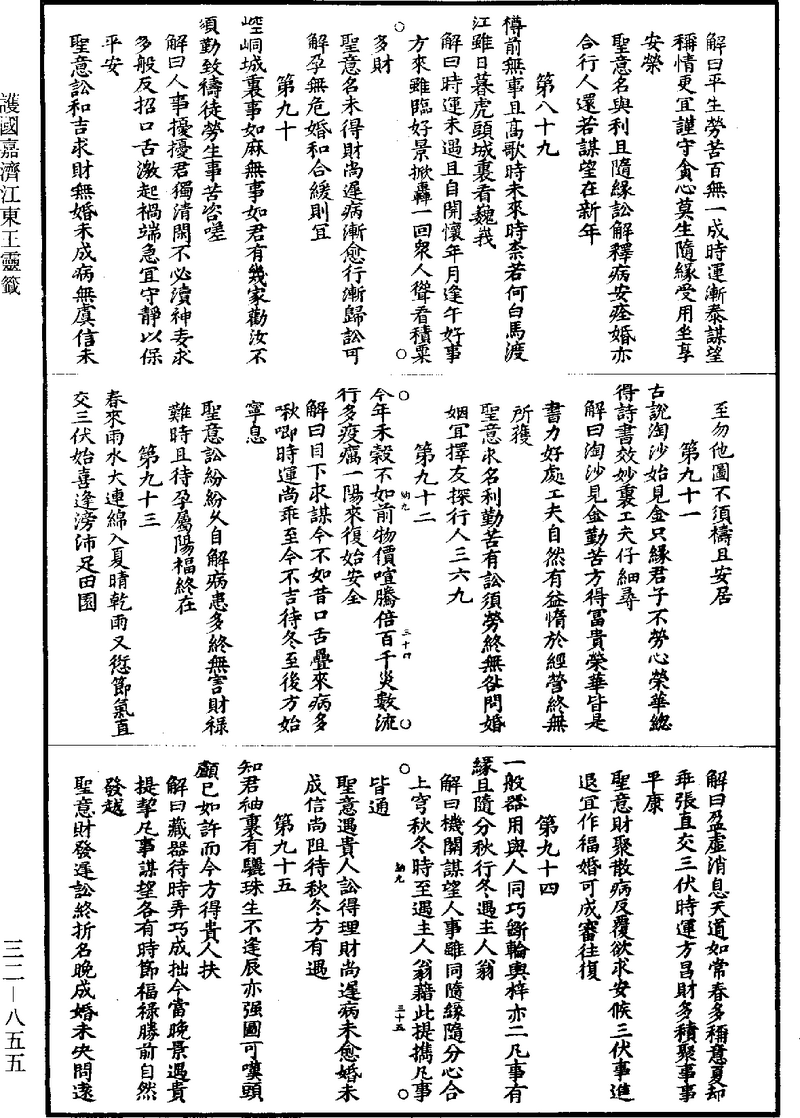 解曰平生勞苦百無一成時運漸泰謀望
稱情更宜謹守貪心莫生隨緣受用坐享
安榮
聖意名與利且隨緣訟解釋病安痊婚亦
合行人還若謀望在新年
第八十九
樽前無事且高歌時未來時柰若何白馬渡
江雖日暮虎頭城裏看巍峩
解曰時運未遇且自開懷年月逢午好事
方來雖臨好景掀轟一回衆人聳看積粟
多財
聖意名未得財尚遲病漸愈行漸歸訟可
解孕無危婚和合緩則宜
第九十
崆峒城裏事如麻無事如君有幾家勸汝不
須勤致禱徒勞生事苦咨嗟
解曰人事擾擾君獨清閑不必瀆神妄求
多般反招口舌激起禍端急宜守靜以保
平安
聖意訟和吉求財無婚未成病無虞信未
至勿他圖不須禱且安居
第九十一
古說淘沙始見金只緣君子不勞心榮華緫
得詩書效妙裏工夫仔細尋
解曰淘沙見金勤苦方得冨貴榮華皆是
書力好處工夫自然有益惰於經營終無
所獲
聖意求名利勤苦有訟須勞終無咎問婚
姻宜擇友探行人三六九
第九十二
今年禾穀不如前物價喧騰倍百千災數流
行多疫癘一陽來復始安全
解曰目下求謀今不如昔口舌疊來病多
啾唧時運尚乖至今不吉待冬至後方始
寧息
聖意訟紛紛久自解病患多終無害財祿
難時且待孕屬陽福終在
第九十三
春來雨水大連綿入夏晴乾雨又愆節氣直
交三伏始喜逢滂沛足田園
解曰盈虛消息天道如常春多稱意夏却
乖張直交三伏時運方昌財多積聚事事
平康
聖意財聚散病反覆欲求安候三伏事進
退宜作福婚可成審往復
第九十四
一般器用與人同巧斲輪輿梓亦工凡事有
緣且隨分秋行冬遇主人翁
解曰機關謀望人事雖同隨緣隨分心合
上穹秋冬時至遇主人翁藉此提携凡事
皆通
聖意遇貴人訟得理財尚遲病未愈婚未
成信尚阻待秋冬方有遇
第九十五
知君袖裏有驪珠生不逢辰亦强圖可嘆頭
顱已如許而今方得貴人扶
解曰藏器待時弄巧成拙今當晚景遇貴
提挈凡事謀望各有時節福禄勝前自然
發越
聖意財發遲訟終折名晚成婚未央問逺
護國嘉濟江東王靈籤
三二—八五五